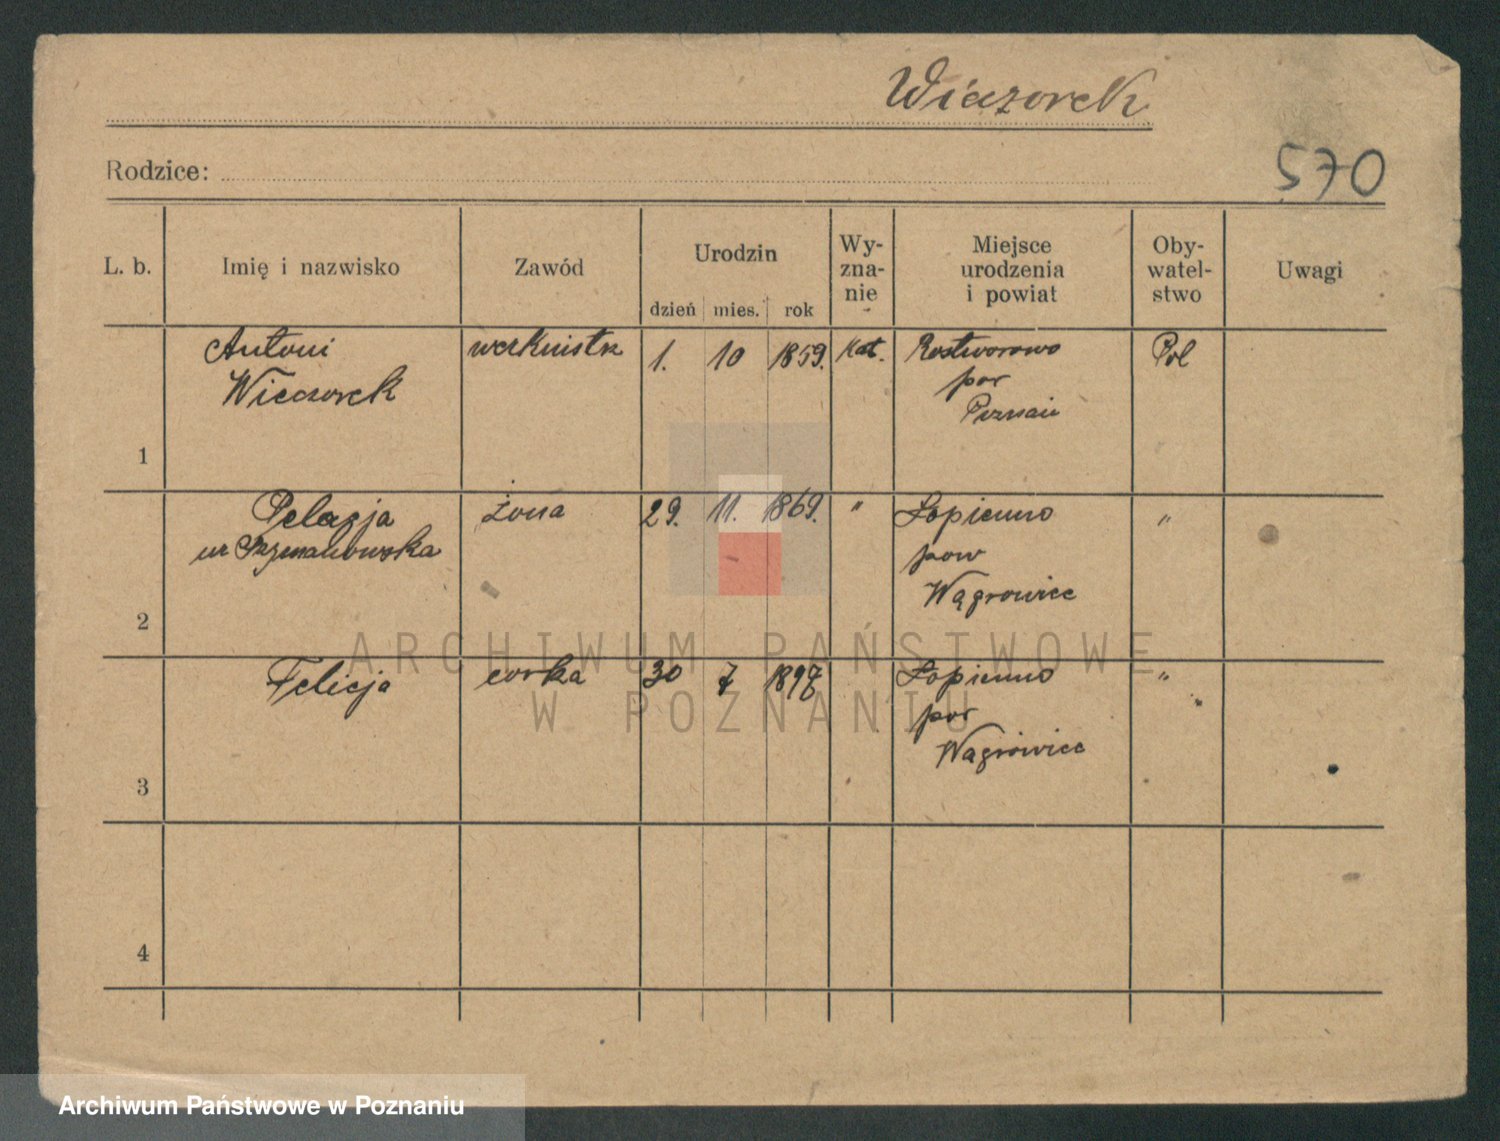 Wieczorek
570
Rodzice:
L. b.
Imię i nazwisko
Zawód
Urodzin
dzień mies. rok
Wy-
zna-
nie
Miejsce
urodzenia
i powiat
Oby-
watel-
stwo
Uwagi
1
Antoni
Wieczorek
werkmistrz
1. 10 1859.
Kat.
Rostworowo
por
Poznań
Pol
2
Pelagja
ur Szymanowska
żona
29. 11. 1869.
"
Łopienno
pow
Wągrowiec
"
3
Felicja
córka
30 7 1897
Łopienno
por
Wągrowiec
"
4
ARCHIWUM PAŃSTWOWE
W POZNANIU
Archiwum Państwowe w Poznaniu